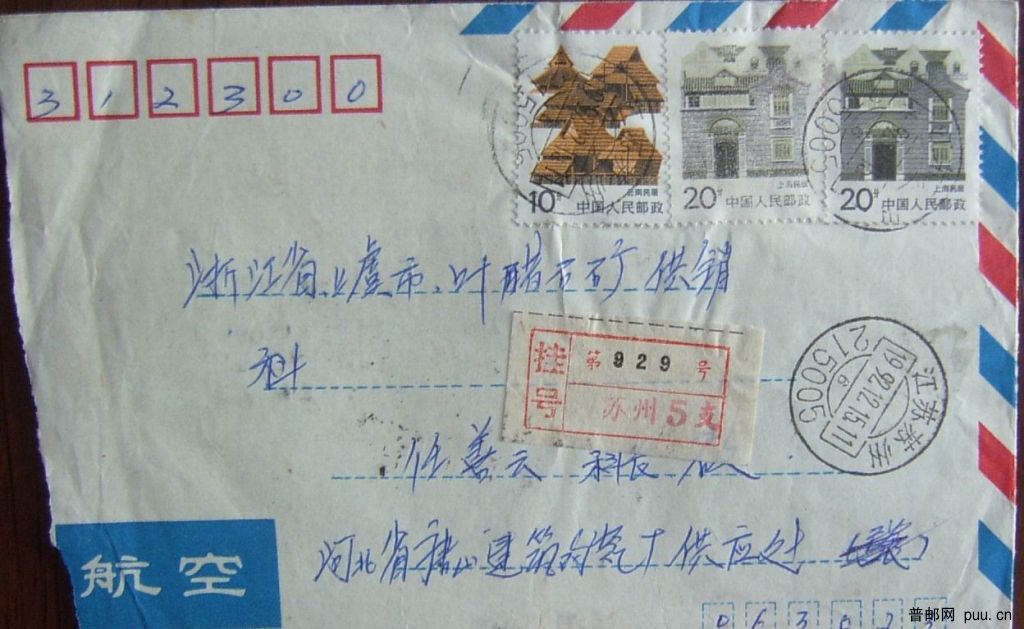 312300
云南民居
10分 中国人民邮政
上海民居
20分 中国人民邮政
上海民居
20分 中国人民邮政
浙江省上虞市、叶腊石矿供销
科
挂号
第 929 号
苏州5支
江苏苏州
19 92.12.15.11
6
215005
任善云 科长 收
河北省唐山建筑陶瓷厂供应处
航空
063023
普邮网 puu.cn